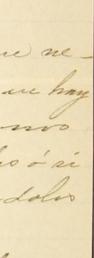 ue ne-
ue hay
onos
os ó si
dolos